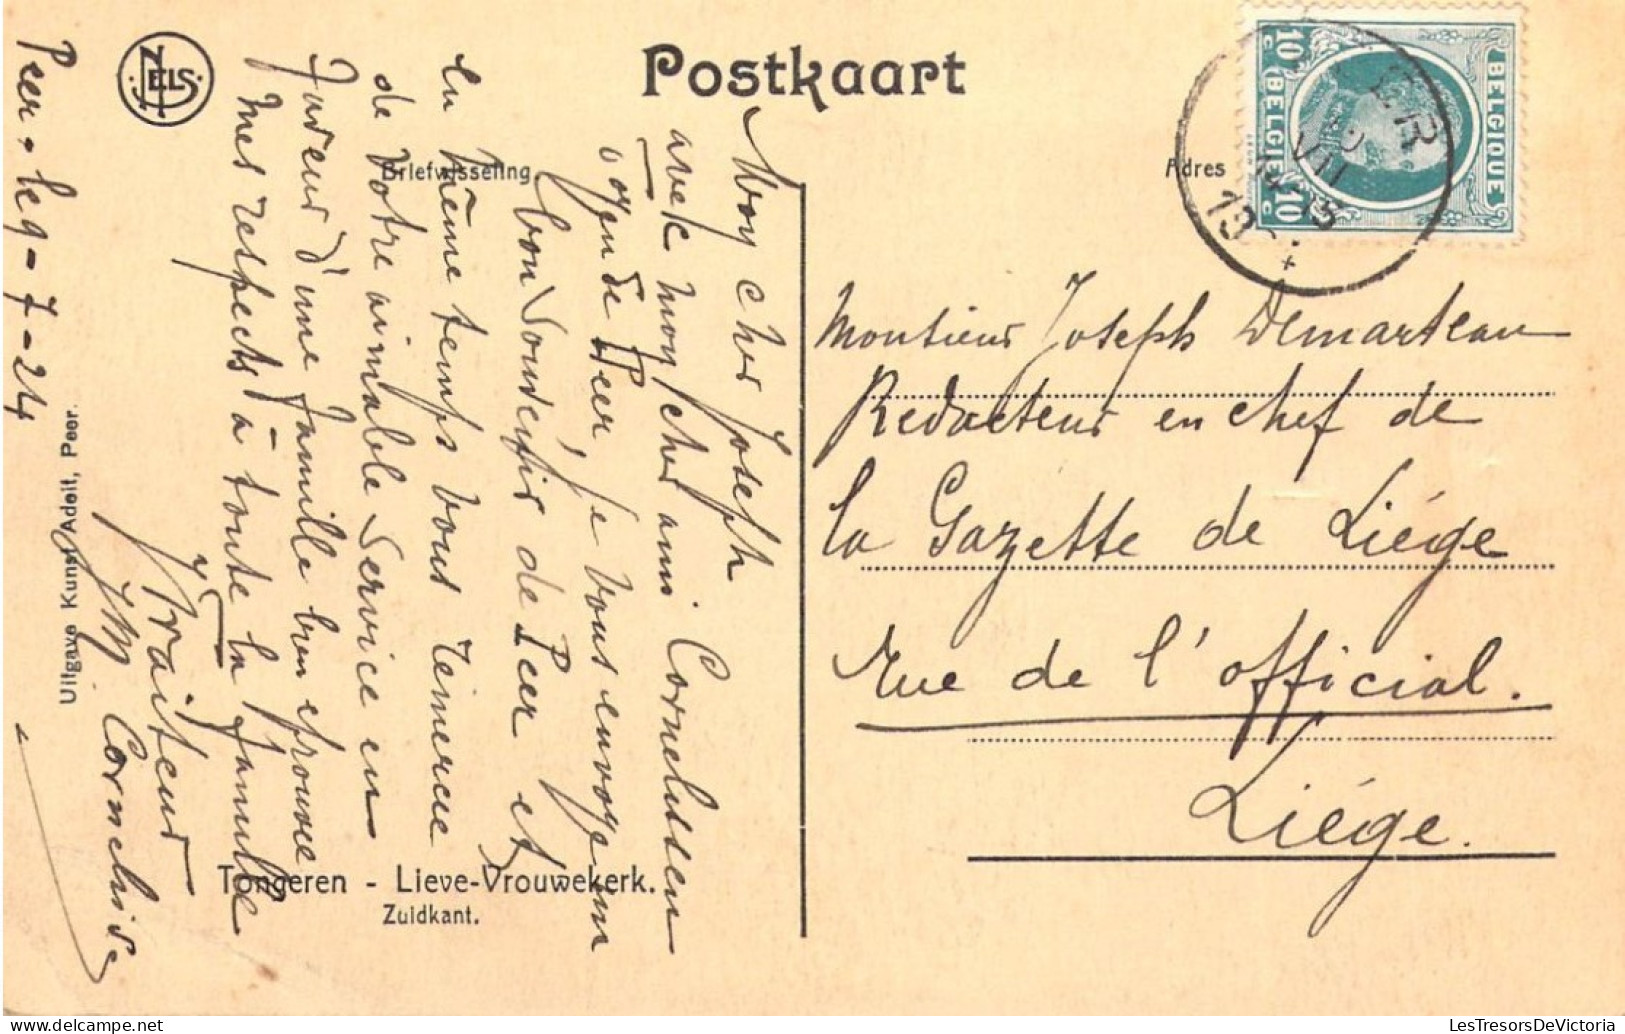 Postkaart
NELS
Briefwisseling.
Adres
BELGIQUE
BELGIË
10 c
10 c
Peer, le 9-7-24
Mon cher Joseph
avec mon cher ami Cornelissen
voyu de Peer je vous envoye un
bon Souvenir de Peer et
en même temps vous remercie
de votre aimable Service en
faveur d'une famille bien eprouvée
mes respects à toute la famille
JM Cornelis
Monsieur Joseph Demarteau
Redacteur en chef de
la Gazette de Liége
Rue de l'official.
Liége.
Tongeren - Lieve-Vrouwekerk.
Zuidkant.
Uitgave Kunst Adelt, Peer.
LesTresorsDeVictoria